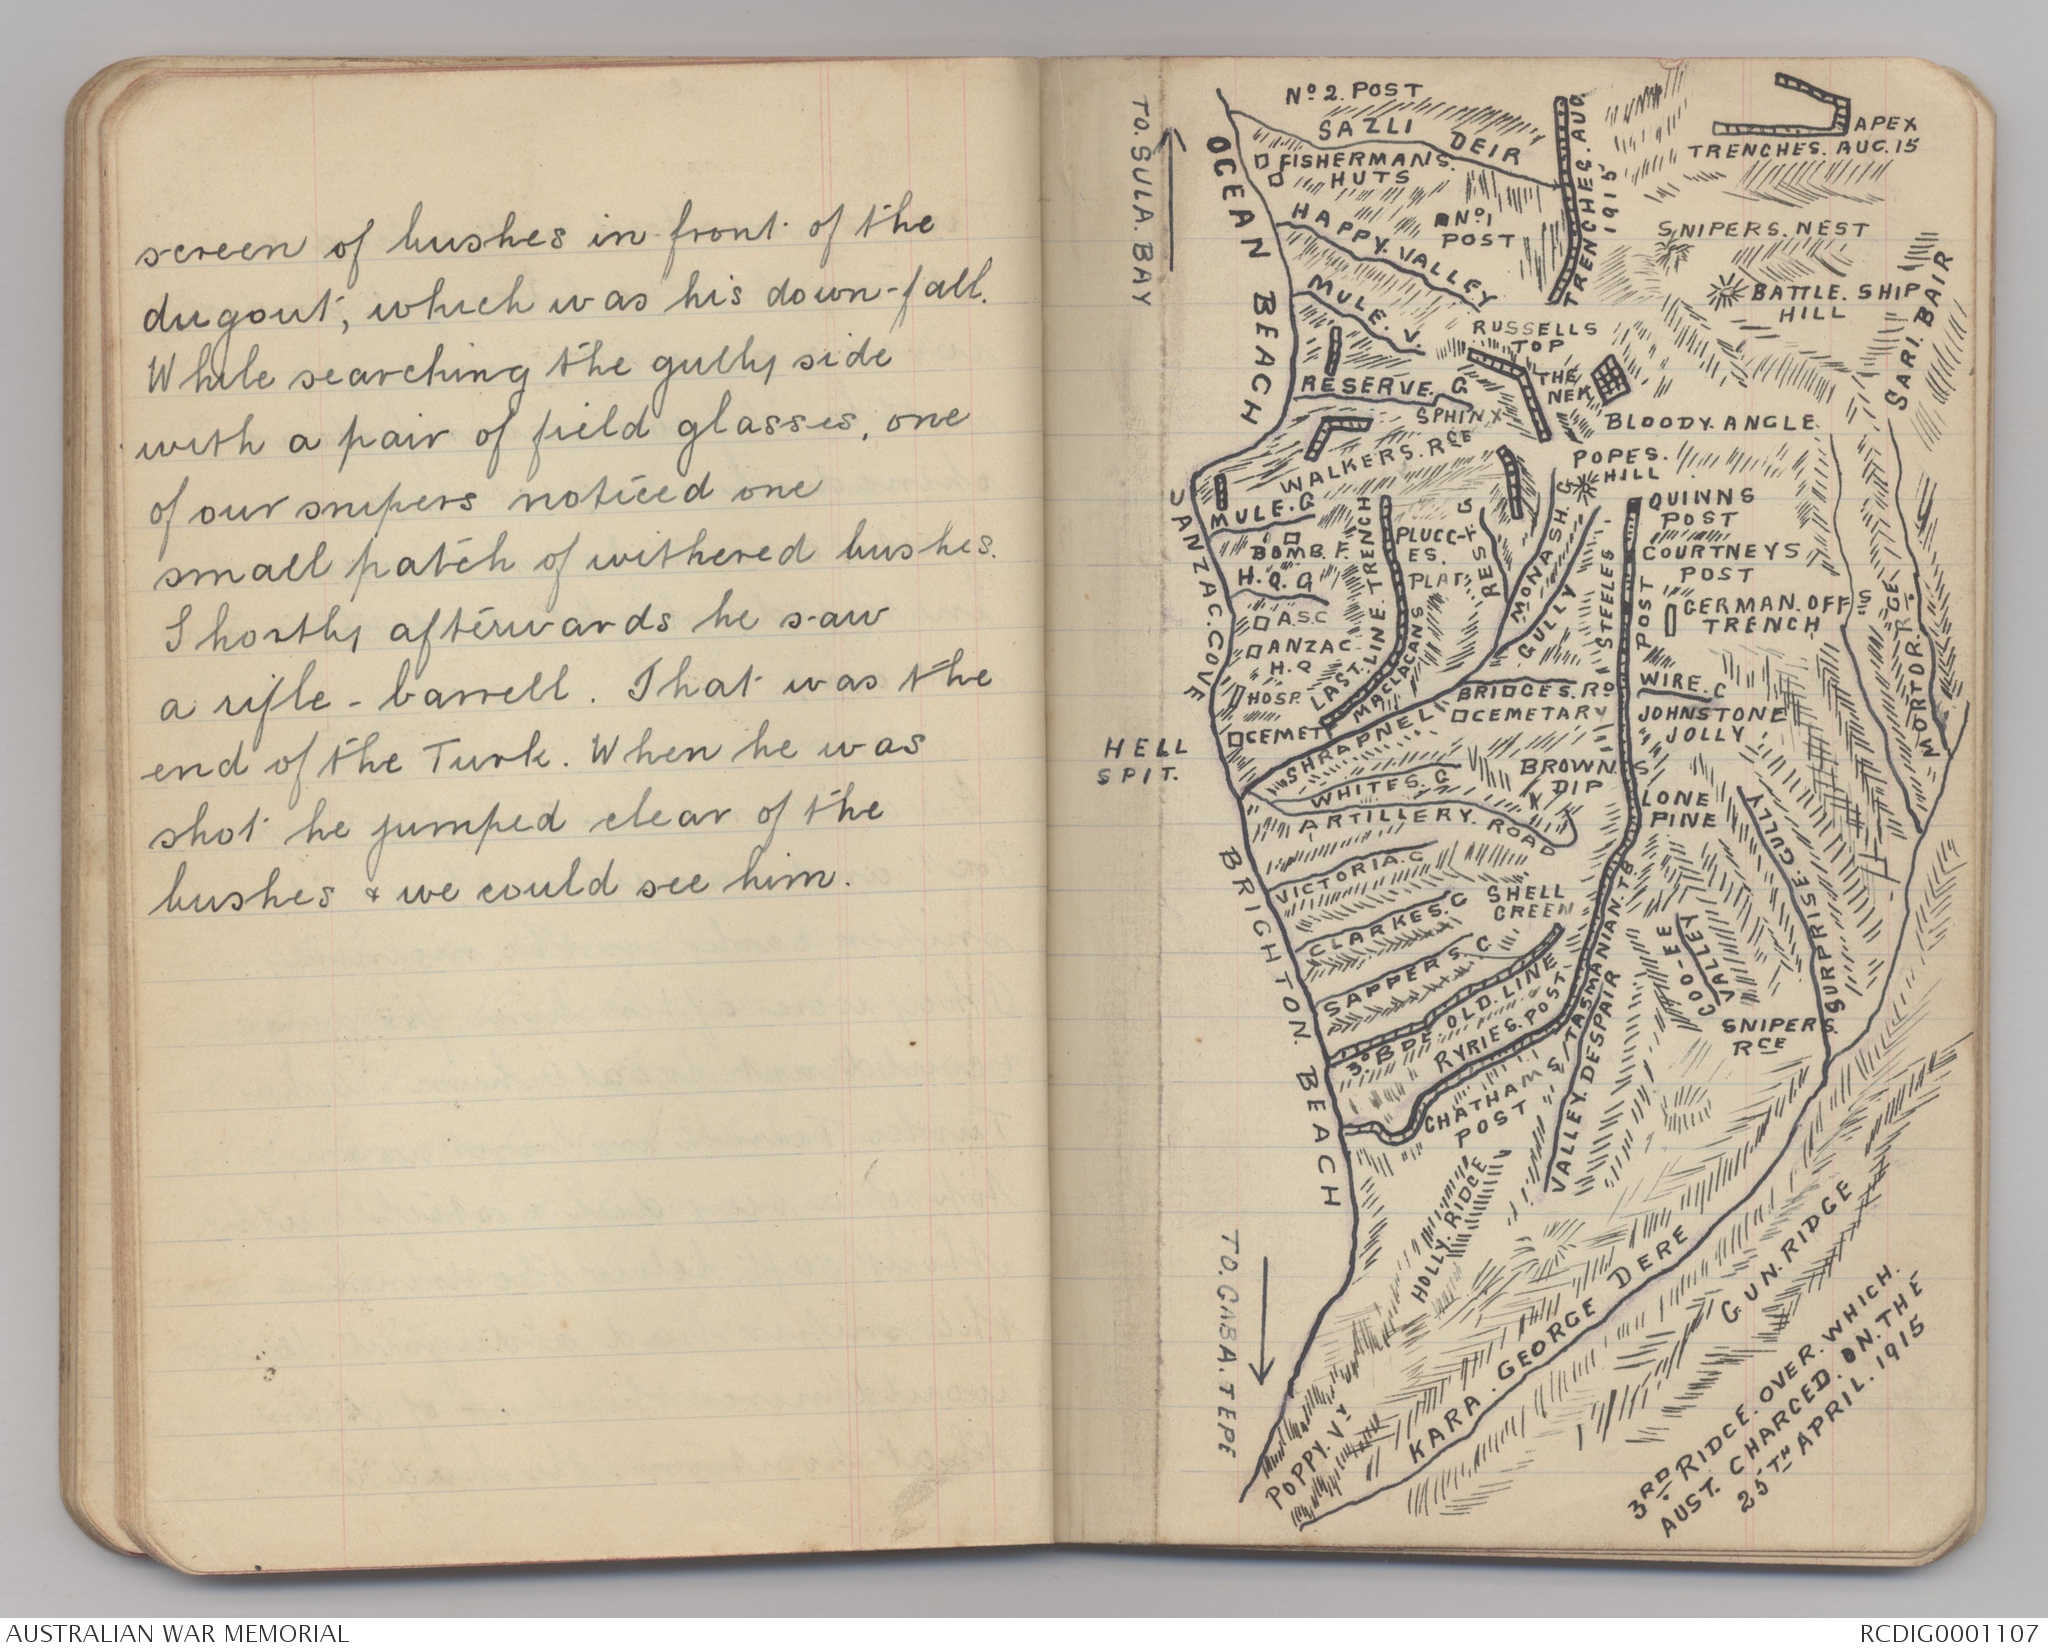 screen of bushes in front of the
dugout, which was his down-fall.
While searching the gully side
with a pair of field glasses, one
of our snipers noticed one
small patch of withered bushes.
Shortly afterwards he saw
a rifle - barrell. That was the
end of the Turk. When he was
shot he jumped clear of the
bushes & we could see him.
TO. SULA. BAY
No 2. POST
SAZLI DEIR
FISHERMANS.
HUTS
OCEAN BEACH
No 1
POST
HAPPY. VALLEY
MULE. V.
TRENCHES. AUG.
1915
APEX
TRENCHES. AUG. 15
SNIPERS. NEST
BATTLE. SHIP
HILL
SARI. BAIR
RUSSELLS
TOP
THE
NEK
RESERVE. G
SPHINX
WALKERS. RCE
BLOODY. ANGLE
POPES.
HILL
QUINNS
POST
COURTNEYS
POST
GERMAN. OFF S
TRENCH
MORTOR. RGE
MULE. G
BOMB. F.
H. Q. G
A.S.C
ANZAC
H. Q
HOSP.
CEMET
ANZAC. COVE
LAST. LINE. TRENCH
PLUGG-
ES.
PLAT
MACLAGANS
REST G
MONASH. G
GULLY
STEELES
POST
WIRE. G
BRIDGES. RD
CEMETARY
JOHNSTONE
JOLLY
HELL
SPIT.
SHRAPNEL
WHITES. G
ARTILLERY. ROAD
BROWNS
DIP
LONE
PINE
VICTORIA. G
SHELL
GREEN
CLARKES. G
SAPPERS. G
BRIGHTON. BEACH
3o BDE. OLD. LINE
RYRIES. POST
TASMANIAN. TR
CHATHAMS
POST
VALLEY. DESPAIR
COO-EE
VALLEY
SURPRISE. GULLY
SNIPERS.
RCE
HOLLY. RIDGE
TO. GABA. TEPE
POPPY. VY
KARA. GEORGE DERE
GUN. RIDGE
3RD RIDGE. OVER. WHICH.
AUST. CHARGED. ON. THE
25TH APRIL. 1915
AUSTRALIAN WAR MEMORIAL
RCDIG0001107